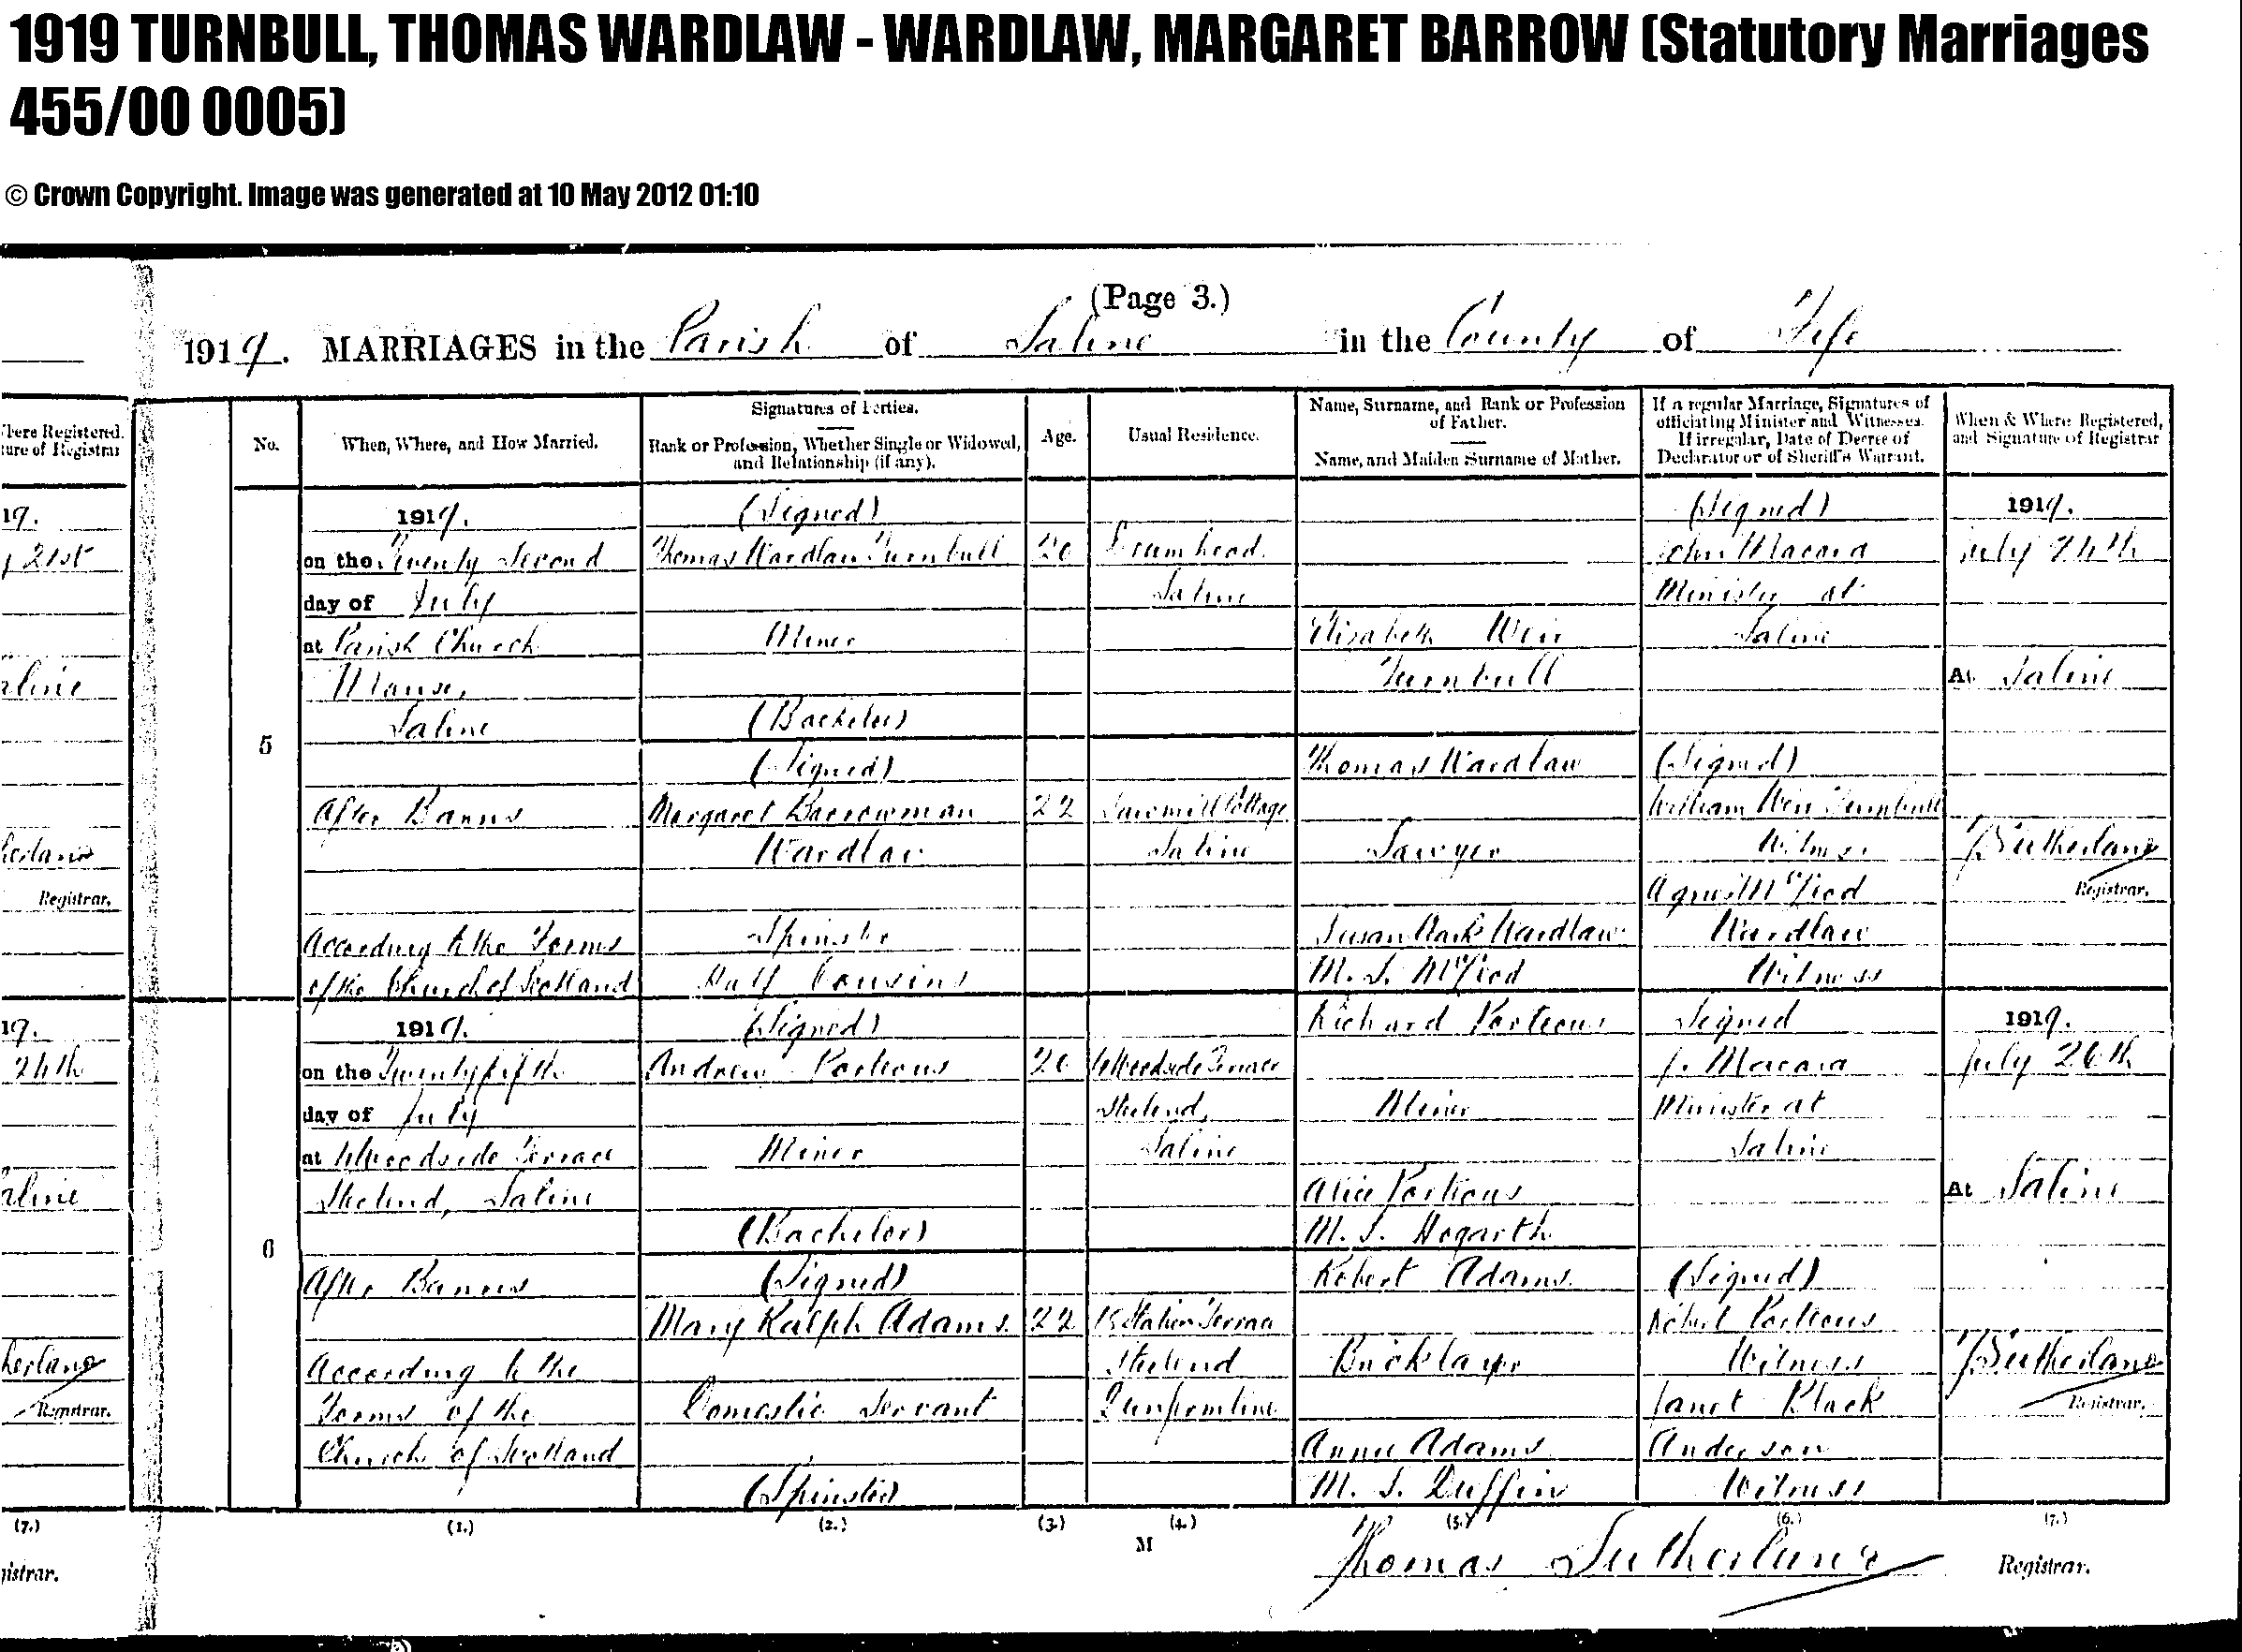 1919 TURNBULL, THOMAS WARDLAW - WARDLAW, MARGARET BARROW (Statutory Marriages
455/00 0005)
© Crown Copyright. Image was generated at 10 May 2012 01:10
(Page 3.)
1919. MARRIAGES in the Parish of Saline in the County of Fife
No.
When, Where, and How Married.
Signatures of Parties.
Rank or Profession, Whether Single or Widowed,
and Relationship (if any).
Age.
Usual Residence.
Name, Surname, and Rank or Profession
of Father.
Name, and Maiden Surname of Mother.
If a regular Marriage, Signatures of
officiating Minister and Witnesses.
If irregular, Date of Decree of
Declarator or of Sheriff's Warrant.
When & Where Registered,
and Signature of Registrar
here Registered.
ture of Registrar
19.
21st
aline
herland
Registrar.
5
1919.
on the Twenty Second
day of July
at Parish Church
Manse,
Saline
After Banns
According to the Forms
of the Church of Scotland
(Signed)
Thomas Wardlaw Turnbull
Miner
(Bachelor)
(Signed)
Margaret Barrowman
Wardlaw
Spinster
Half Cousins
20
22
Drumhead
Saline
Sawmill Cottage
Saline
Elizabeth Weir
Turnbull
Thomas Wardlaw
Sawyer
Susan Wardlaw
M. S. McLeod
(Signed)
John Macara
Minister at
Saline
(Signed)
William Weir Turnbull
Witness
Agnes McLeod
Wardlaw
Witness
1919.
July 24th
At Saline
T Sutherland
Registrar.
19.
24th
aline
herland
Registrar.
6
1919.
on the Twenty fifth
day of July
at Woodside Terrace
Steelend, Saline
After Banns
According to the
Forms of the
Church of Scotland
(Signed)
Andrew Porteous
Miner
(Bachelor)
(Signed)
Mary Ralph Adams
Domestic Servant
(Spinster)
26
22
Woodside Terrace
Steelend,
Saline
Station Terrace
Steelend
Dunfermline
Richard Porteous
Miner
Alice Porteous
M. S. Hogarth
Robert Adams
Bricklayer
Annie Adams
M. S. Duffin
Signed
J. Macara
Minister at
Saline
(Signed)
Robert Porteous
Witness
Janet Black
Anderson
Witness
1919.
July 26th
At Saline
T Sutherland
Registrar.
(7.)
(1.)
(2.)
(3.)
(4.)
(5.)
(6.)
(7.)
M
gistrar.
Thomas Sutherland
Registrar.